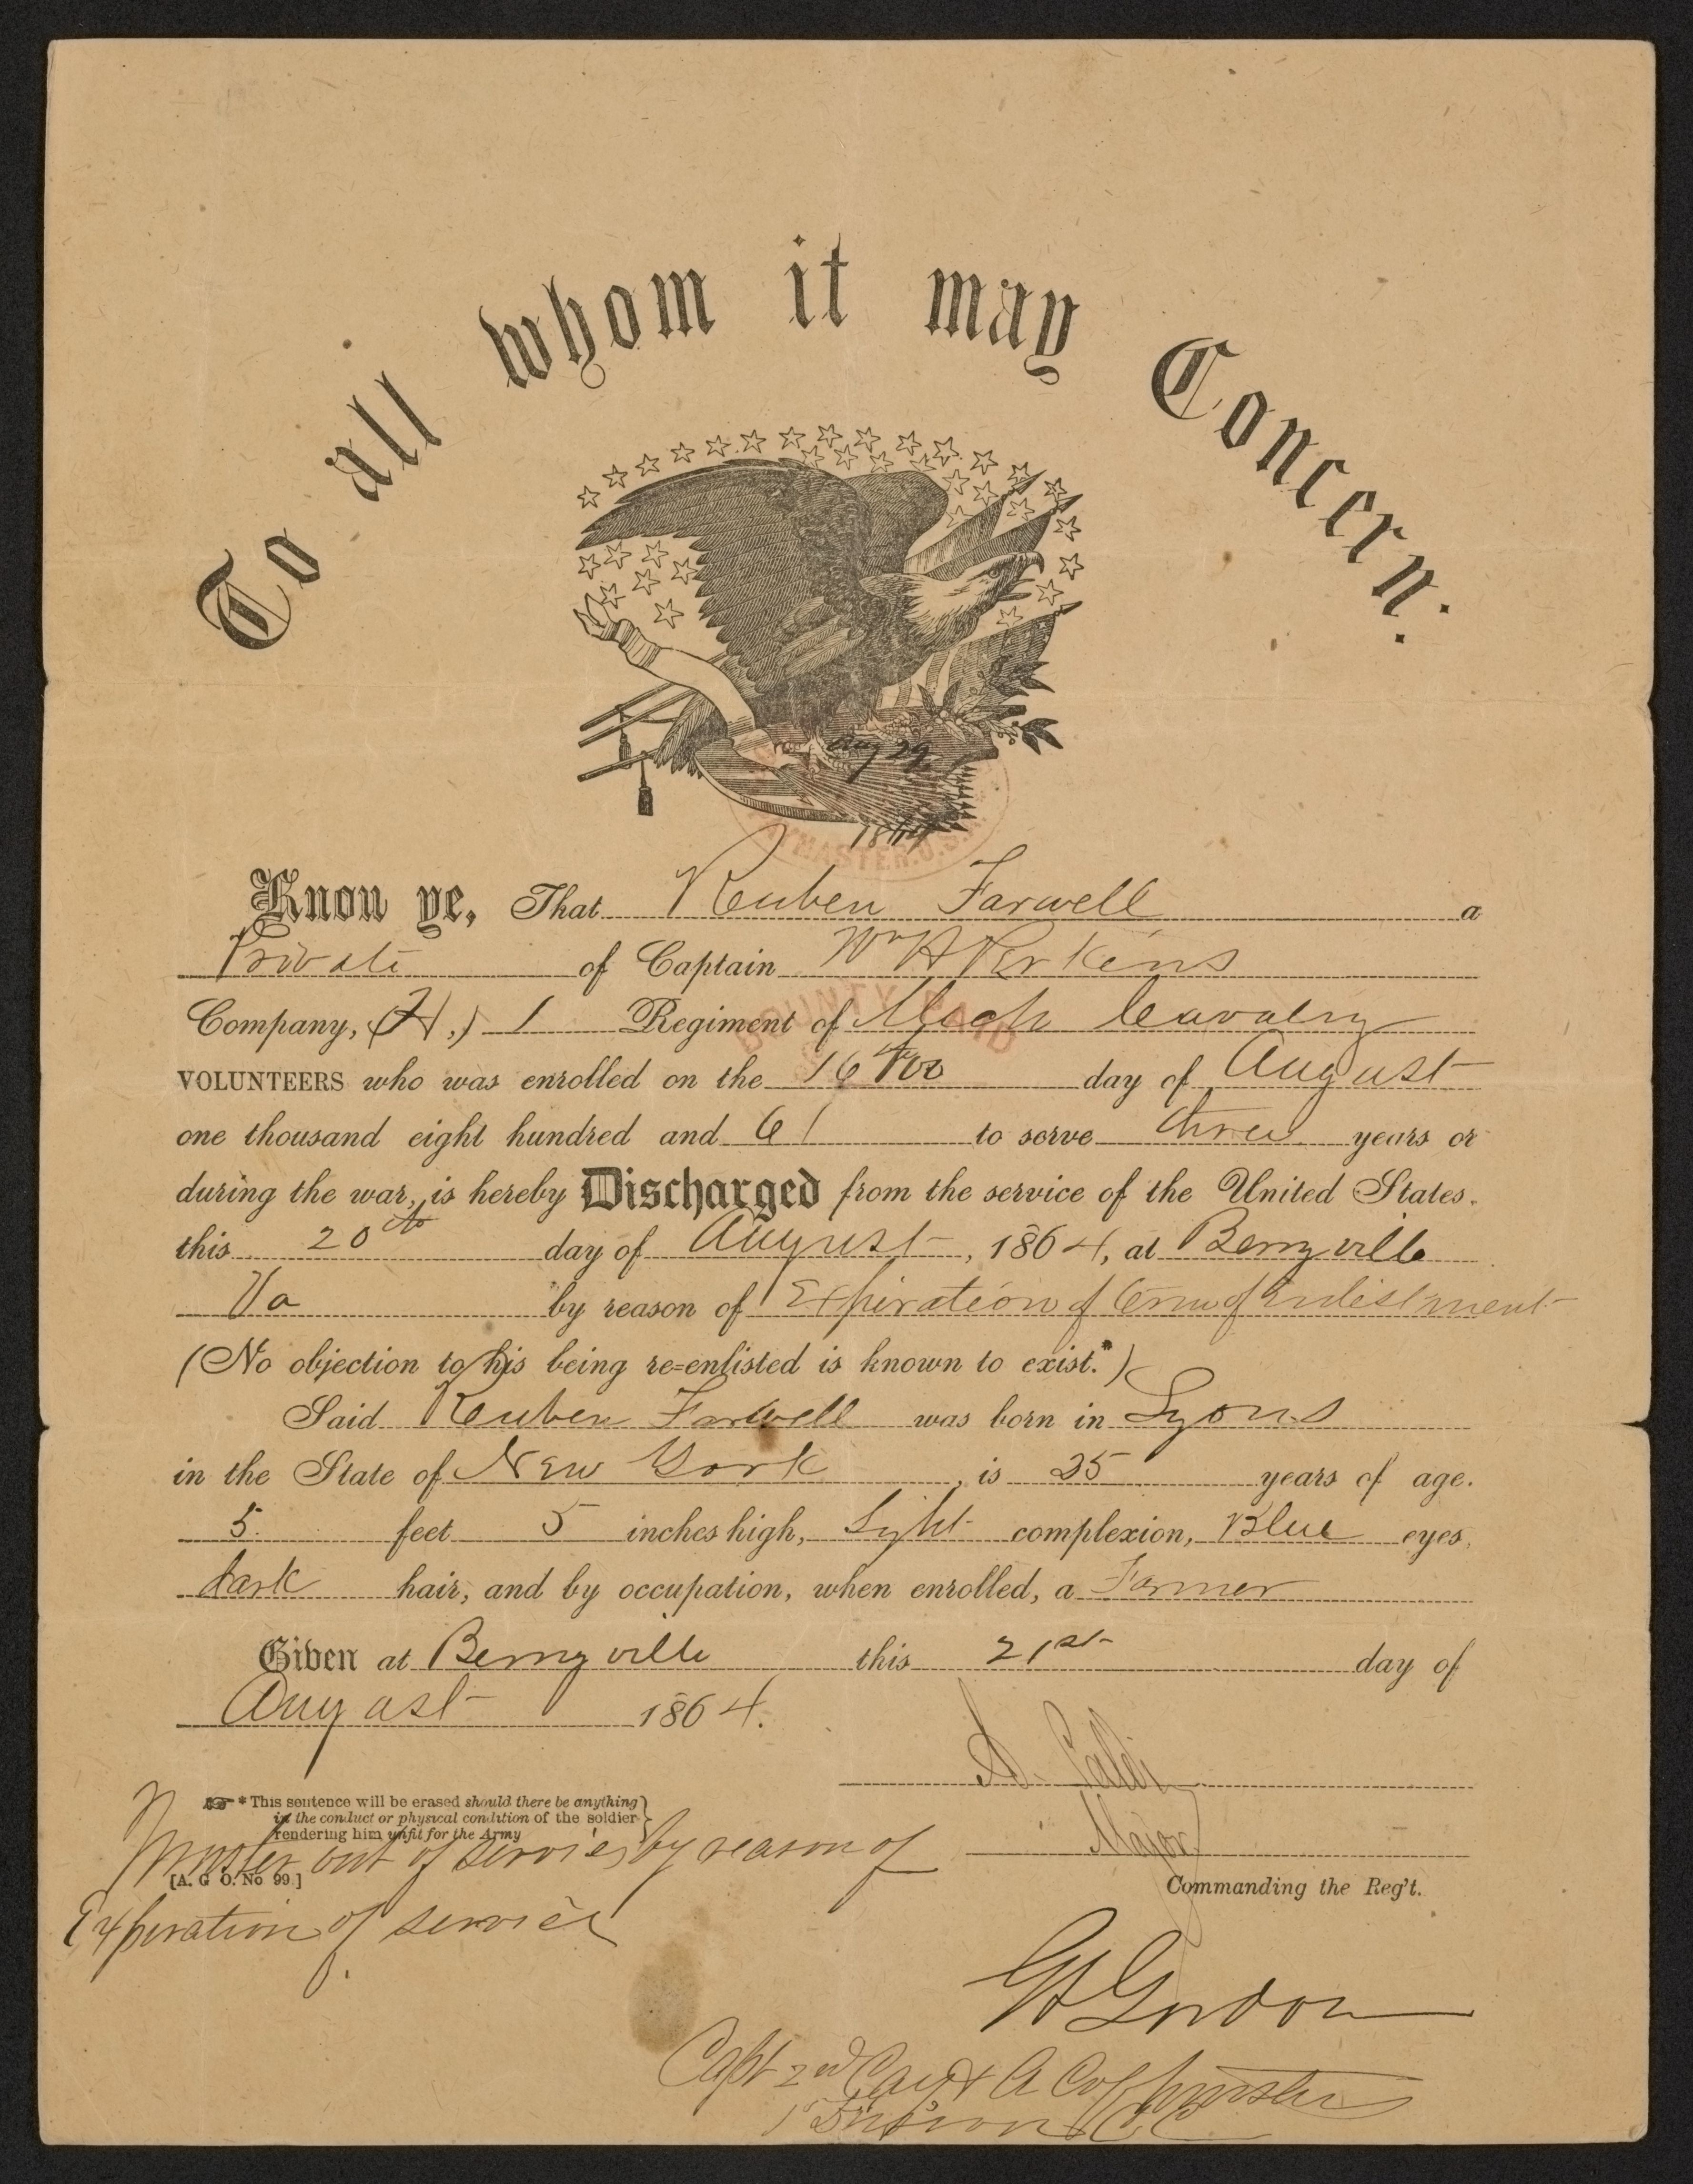 To all whom it may Concern:
Aug 29
1864
PAYMASTER. U.S.A.
Know ye, That Reuben Farwell a
Private of Captain Wm H Perkins
Company, (H,) 1 Regiment of Mich Cavalry
BOUNTY PAID
VOLUNTEERS who was enrolled on the 16 day of August
one thousand eight hundred and 61 to serve three years or
during the war, is hereby Discharged from the service of the United States.
this 20th day of August, 1864, at Berryville
Va by reason of Expiration of term of Enlistment
(No objection to his being re=enlisted is known to exist.*)
Said Reuben Farwell was born in Lyons
in the State of New York, is 25 years of age.
5 feet 5 inches high, Light complexion, Blue eyes,
dark hair, and by occupation, when enrolled, a Farmer
Given at Berryville this 21st day of
August 1864.
Major
Commanding the Reg't.
☞ * This sentence will be erased should there be anything
in the conduct or physical condition of the soldier
rendering him unfit for the Army
[A. G O. No 99.]
Muster out of service by reason of
Expiration of service
Gordon
Capt 2nd Cav & A Co Muster
1 Division C. C